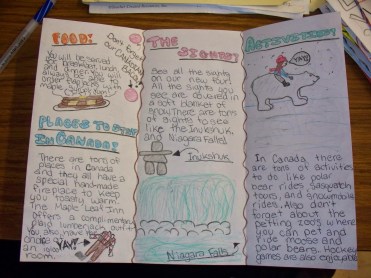 FOOD!
You will be served
breakfast, lunch, and
dinner. You will
always
order flapjacks with
maple syrup!
Don't forget
our CANADIAN
BACON!
PLACES TO STAY
IN CANADA!
There are tons of
places in Canada
and they all have a
special hand-made
fireplace to keep
you toasty warm.
The Maple Leaf Inn
offers a complimentary
plaid lumberjack outfit.
You also have the
an igloo
room.
YAY!
THE SIGHTS!
See all the sights
on our new tour!
All the sights you
see are covered in
a soft blanket of
snow. There are tons
of sights to see
like the Inukshuk,
and Niagara Falls!
Inukshuk
Niagara Falls
ACTIVITIES!
In Canada, there
are tons of activities
to do like polar
bear rides, Sasquatch
tours, and snowmobile
rides. Also don't
forget about the
petting zoos where
you can pet and
ride moose and
polar bears. Hockey
games are also enjoyable.